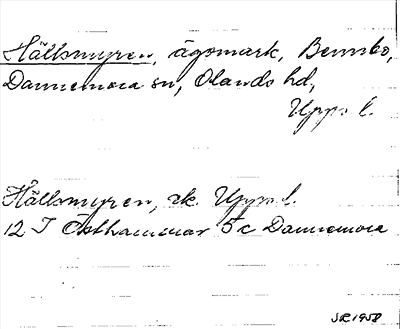 Hällsmyren, ägomark, Bennbo,
Dannemora sn, Olands hd,
Upps. l.
Hällsmyren, rk. Upps. l.
12 I Östhammar 5 c Dannemora
SR 1958